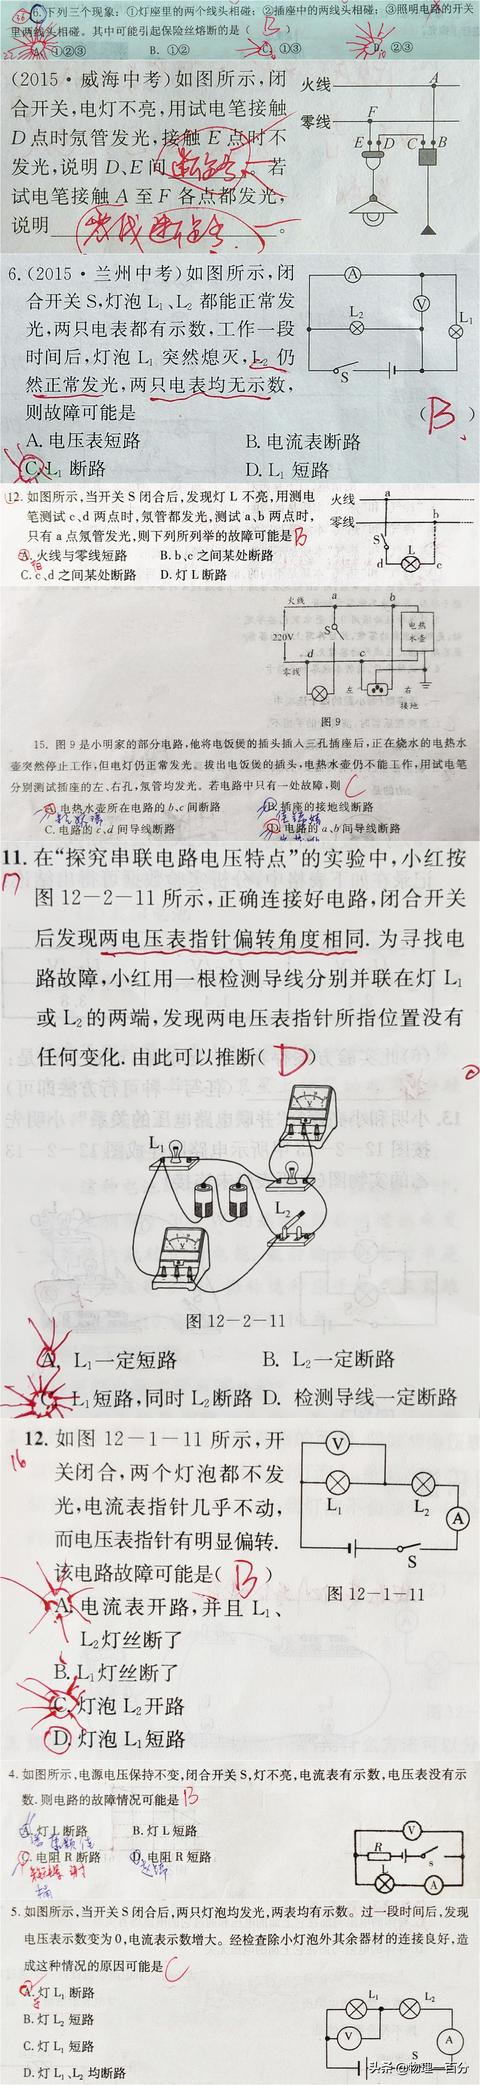 6.下列三个现象：①灯座里的两个线头相碰；②插座中的两线头相碰；③照明电路的开关
里两线头相碰。其中可能引起保险丝熔断的是（ B ）
A. ①②③ B. ①② C. ①③ D. ②③
(2015·威海中考)如图所示,闭
合开关,电灯不亮,用试电笔接触
D点时氖管发光,接触E点时不
发光,说明D、E间 断路 。若
试电笔接触A至F各点都发光,
说明 。
火线
零线
A
F
E D C B
6.(2015·兰州中考)如图所示,闭
合开关S,灯泡L₁、L₂都能正常发
光,两只电表都有示数,工作一段
时间后,灯泡L₁突然熄灭,L₂仍
然正常发光,两只电表均无示数,
则故障可能是 （ B ）
A. 电压表短路 B. 电流表断路
C. L₁断路 D. L₁短路
A
V
L₂
L₁
S
12. 如图所示,当开关S闭合后,发现灯L不亮,用测电
笔测试c、d两点时,氖管都发光,测试a、b两点时,
只有a点氖管发光,则下列所列举的故障可能是 B
A. 火线与零线短路 B. b、c之间某处断路
C. c、d之间某处断路 D. 灯L断路
火线
零线
a
b
S
L
d c
火线 a b
220V
S
电热
水壶
d c
零线
左 右
接地
图9
15. 图9是小明家的部分电路,他将电饭煲的插头插入三孔插座后,正在烧水的电热水
壶突然停止工作,但电灯仍正常发光。拔出电饭煲的插头,电热水壶仍不能工作,用试电笔
分别测试插座的左、右孔,氖管均发光。若电路中只有一处故障,则 C
A. 电热水壶所在电路的b、c间断路 B. 插座的接地线断路
C. 电路的c、d间导线断路 D. 电路的a、b间导线断路
11. 在“探究串联电路电压特点”的实验中,小红按
17
图12-2-11所示,正确连接好电路,闭合开关
后发现两电压表指针偏转角度相同. 为寻找电
路故障,小红用一根检测导线分别并联在灯L₁
或L₂的两端,发现两电压表指针所指位置没有
任何变化. 由此可以推断( D )
L₁
L₂
图12-2-11
A. L₁一定短路 B. L₂一定断路
C. L₁短路,同时L₂断路 D. 检测导线一定断路
12. 如图12-1-11所示,开
16
关闭合,两个灯泡都不发
光,电流表指针几乎不动,
而电压表指针有明显偏转.
该电路故障可能是( B )
A. 电流表开路,并且L₁、
L₂灯丝断了
B. L₁灯丝断了
C. 灯泡L₂开路
D. 灯泡L₁短路
V
L₁ L₂
A
S
图12-1-11
4. 如图所示,电源电压保持不变,闭合开关S,灯不亮,电流表有示数,电压表没有示
数. 则电路的故障情况可能是 B
A. 灯L断路 B. 灯L短路
C. 电阻R断路 D. 电阻R短路
V
R
S
L
A
5. 如图所示,当开关S闭合后,两只灯泡均发光,两表均有示数。过一段时间后,发现
电压表示数变为0,电流表示数增大。经检查除小灯泡外其余器材的连接良好,造
成这种情况的原因可能是 C
A. 灯L₁断路
B. 灯L₂短路
C. 灯L₁短路
D. 灯L₁、L₂均断路
L₁ L₂
V
A
S
头条@物理一百分